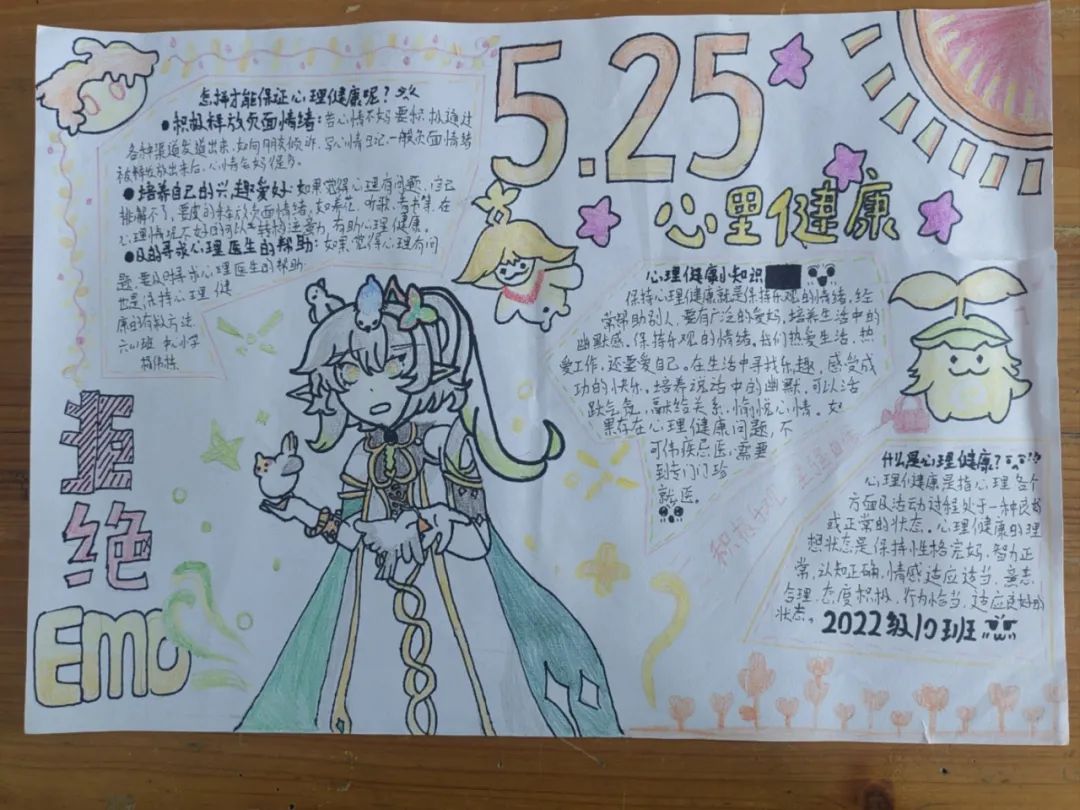 5.25
心里健康
怎样才能保证心理健康呢?
●积极释放负面情绪:若心情不好要积极通过
各种渠道发道出来,如向朋友倾诉,写心情日记一般负面情绪
被释放出来后,心情会好很多。
●培养自己的兴趣爱好:如果觉得心理有问题,自己
排解不了,要度的释放负面情绪,如养花、听歌、看书等,在
心理情况不好时可以转移注意力,有助心理健康。
●及时寻求心理医生的帮助:如果觉得心理有问
题,要及时寻求心理医生的帮助
也是保持心理健
康的有效方法
拒
绝
EMO
心理健康小知识
保持心理健康就是保持乐观的情绪,经
常帮助别人,要有广泛的爱好,培养生活中的
幽默感。保持乐观的情绪。我们热爱生活、热
爱工作,还要爱自己。在生活中寻找乐趣,感受成
功的快乐。培养说话中的幽默,可以活
跃气氛,献给关系,愉悦心情。如
果存在心理健康问题,不
可伟疾忌医,需要
到专门门诊
就医。
积极乐观
什么是心理健康?
心理健康是指心理各个
方面及活动过程处于一种良好
或正常的状态。心理健康的理
想状态是保持性格完好,智力正
常,认知正确,情感适应适当,意志
合理,态度积极,行为恰当,适应良好的
状态。
2022级10班